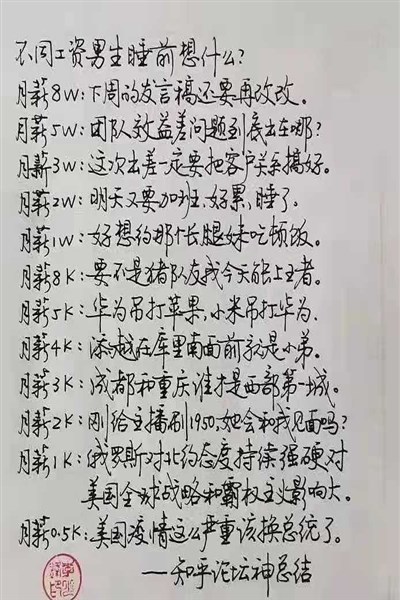 不同工资男生睡前想什么?
月薪8W:下周的发言稿还要再改改。
月薪5W:团队效益差问题到底出在哪?
月薪3W:这次出差一定要把客户关系搞好。
月薪2W:明天又要加班,好累,睡了。
月薪1W:好想约那个长腿妹吃顿饭。
月薪8K:要不是猪队友我今天能上王者。
月薪5K:华为吊打苹果,小米吊打华为.
月薪4K:添越在库里南面前就是小弟。
月薪3K:成都和重庆谁才是西部第一城。
月薪2K:刚给主播刷1950,她会和我见面吗?
月薪1K:俄罗斯对北约态度持续强硬对
美国全球战略和霸权主义影响大。
月薪0.5K:美国疫情这么严重该换总统了。
——知乎论坛神总结